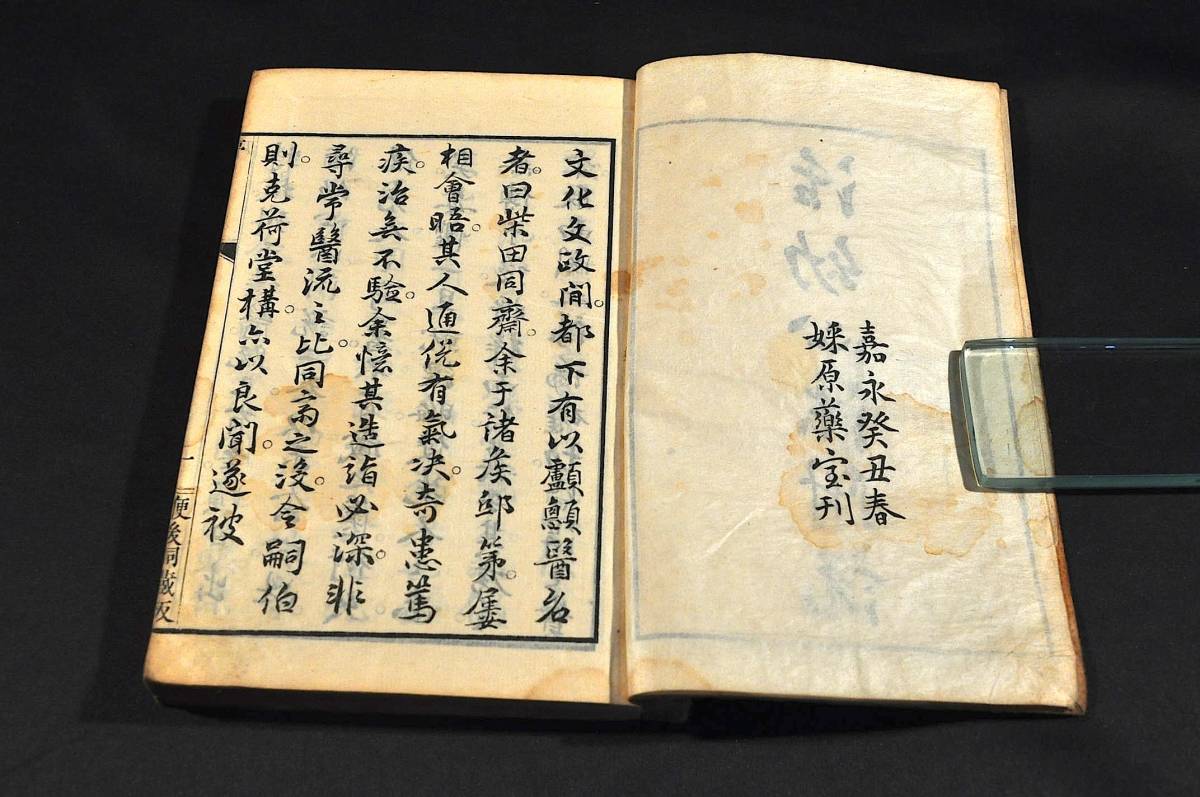 嘉永癸丑春
原藥室刊
文化文政間。都下有以顱顖醫名
者。曰柴田同齋。余于諸侯邸第。屢
相會晤。其人通侻有氣決。奇患篤
疾。治無不驗。余憶其造詣必深。非
尋常醫流之比。同斎之没。令嗣伯
則克荷堂構。亦以良聞。遂被
一